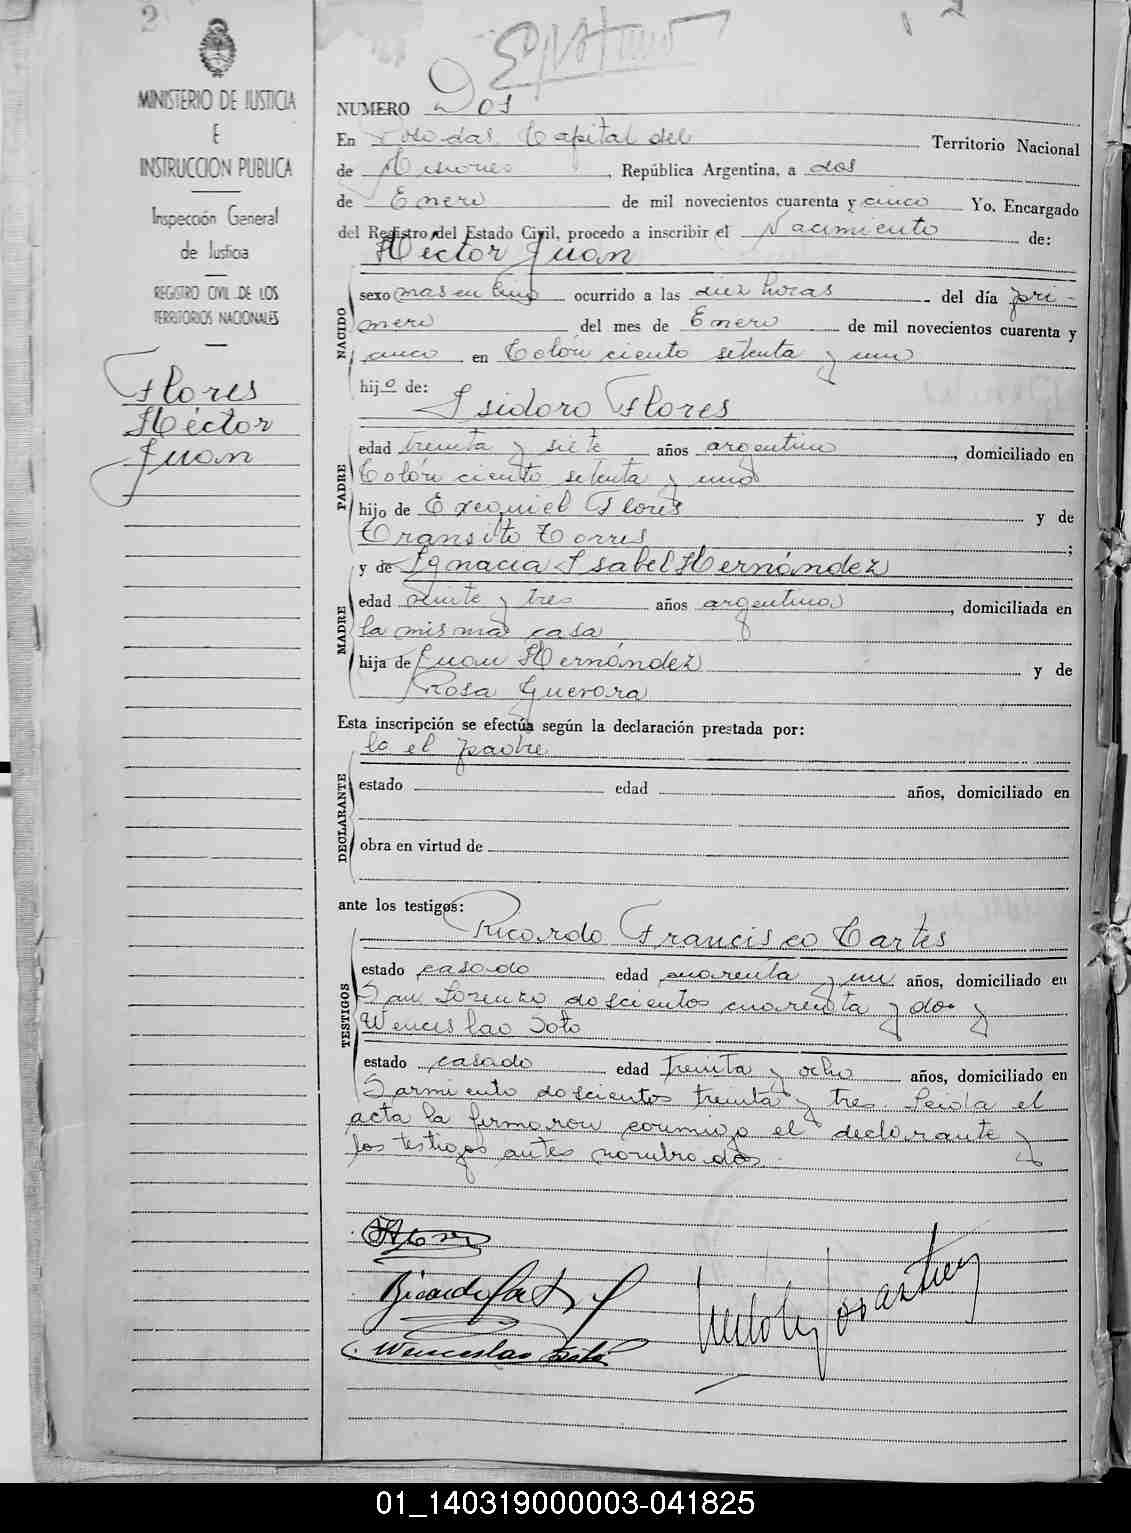 2
MINISTERIO DE JUSTICIA
E
INSTRUCCION PUBLICA
Inspección General
de Justicia
REGISTRO CIVIL DE LOS
TERRITORIOS NACIONALES
Flores
Héctor
Juan
NUMERO Dos
En Posadas Capital del Territorio Nacional
de Misiones, República Argentina, a dos
de Enero de mil novecientos cuarenta y cinco Yo, Encargado
del Registro del Estado Civil, procedo a inscribir el Nacimiento de:
Héctor Juan
NACIDO
sexo masculino ocurrido a las diez horas del día pri-
mero del mes de Enero de mil novecientos cuarenta y
cinco en Colón ciento setenta y uno
hijo de:
Isidoro Flores
PADRE
edad treinta y siete años argentino, domiciliado en
Colón ciento setenta y uno
hijo de Exequiel Flores y de
Transito Torres;
y de Ignacia Isabel Hernández
MADRE
edad veinte y tres años argentina, domiciliada en
la misma casa
hija de Juan Hernández y de
Rosa Guevara
Esta inscripción se efectúa según la declaración prestada por:
el padre
DECLARANTE
estado edad años, domiciliado en
obra en virtud de
ante los testigos:
Ricardo Francisco Cartes
TESTIGOS
estado casado edad cuarenta y un años, domiciliado en
San Lorenzo doscientos cuarenta y dos y
Wenceslao Soto
estado casado edad treinta y ocho años, domiciliado en
Sarmiento doscientos treinta y tres. Leida el
acta la firmaron conmigo el declarante y
los testigos antes nombrados.
Wenceslao Soto
01_140319000003-041825